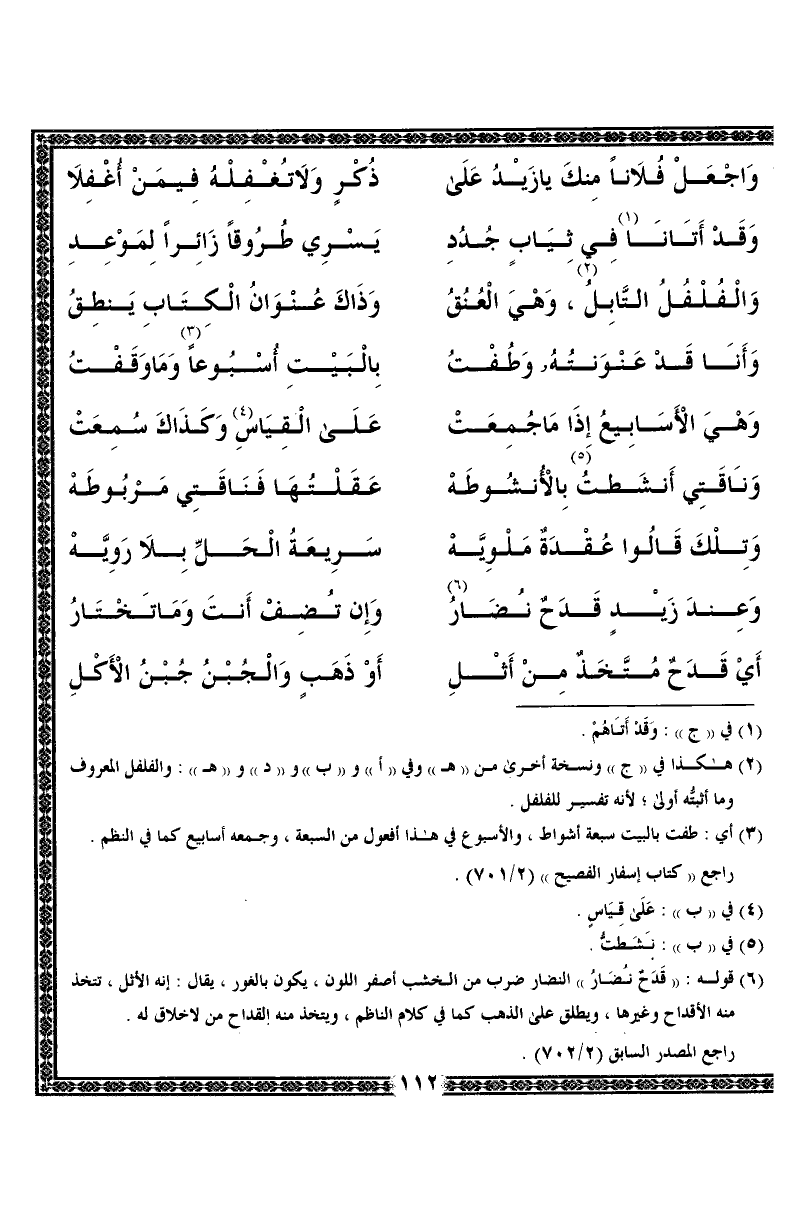 وَاجْعَلْ فُلَاناً مِنكَ يازَيْدُ عَلَى ذُكْرٍ وَلَاتُغْفِلْهُ فِيمَنْ أُغْفِلَا
وَقَدْ أَتَانَا(١) فِي ثِيَابٍ جُدُدِ يَسْرِي طُرُوقاً زَائِراً لِمَوْعِدِ
وَالْفُلْفُلُ التَّابِلُ(٢) ، وَهْيَ الْعُنُقُ وَذَاكَ عُنْوَانُ الْكِتَابِ يَنطِقُ
وَأَنَا قَدْ عَنْوَنتُهُ، وَطُفْتُ بِالْبَيْتِ أُسْبُوعاً(٣) وَمَاوَقَفْتُ
وَهْيَ الْأَسَابِيعُ إِذَا مَاجُمِعَتْ عَلَى الْقِيَاسِ(٤) وَكَذَاكَ سُمِعَتْ
وَنَاقَتِي أَنشَطتُ(٥) بِالْأُنشُوطَهْ عَقَلْتُهَا فَنَاقَتِي مَرْبُوطَهْ
وَتِلْكَ قَالُوا عُقْدَةٌ مَلْوِيَّهْ سَرِيعَةُ الْحَلِّ بِلَا رَوِيَّهْ
وَعِندَ زَيْدٍ قَدَحٌ نُضَارُ(٦) وَإِن تُضِفْ أَنتَ وَمَاتَخْتَارُ
أَيْ قَدَحٌ مُتَّخَذٌ مِنْ أَثْلِ أَوْ ذَهَبٍ وَالْجُبْنُ جُبْنُ الْأَكْلِ
(١) في « ج » : وَقَدْ أَتَاهُمْ .
(٢) هـٰكذا في « ج » ونسخة أخرى من « هـ » وفي « أ » و « ب » و « د » و « هـ » : والفلفل المعروف
وما أثبتُّه أولى ؛ لأنه تفسير للفلفل .
(٣) أي : طفت بالبيت سبعة أشواط ، والأسبوع في هـٰذا أفعول من السبعة ، وجمعه أسابيع كما في النظم .
راجع « كتاب إسفار الفصيح » (٧٠١/٢) .
(٤) في « ب » : عَلَى قِيَاسٍ .
(٥) في « ب » : نَشَطتُّ .
(٦) قوله : « قَدَحٌ نُضَارُ » النضار ضرب من الخشب أصفر اللون ، يكون بالغور ، يقال : إنه الأثل ، تتخذ
منه الأقداح وغيرها ، ويطلق على الذهب كما في كلام الناظم ، ويتخذ منه القداح من لاخلاق له .
راجع المصدر السابق (٧٠٢/٢) .
١١٢